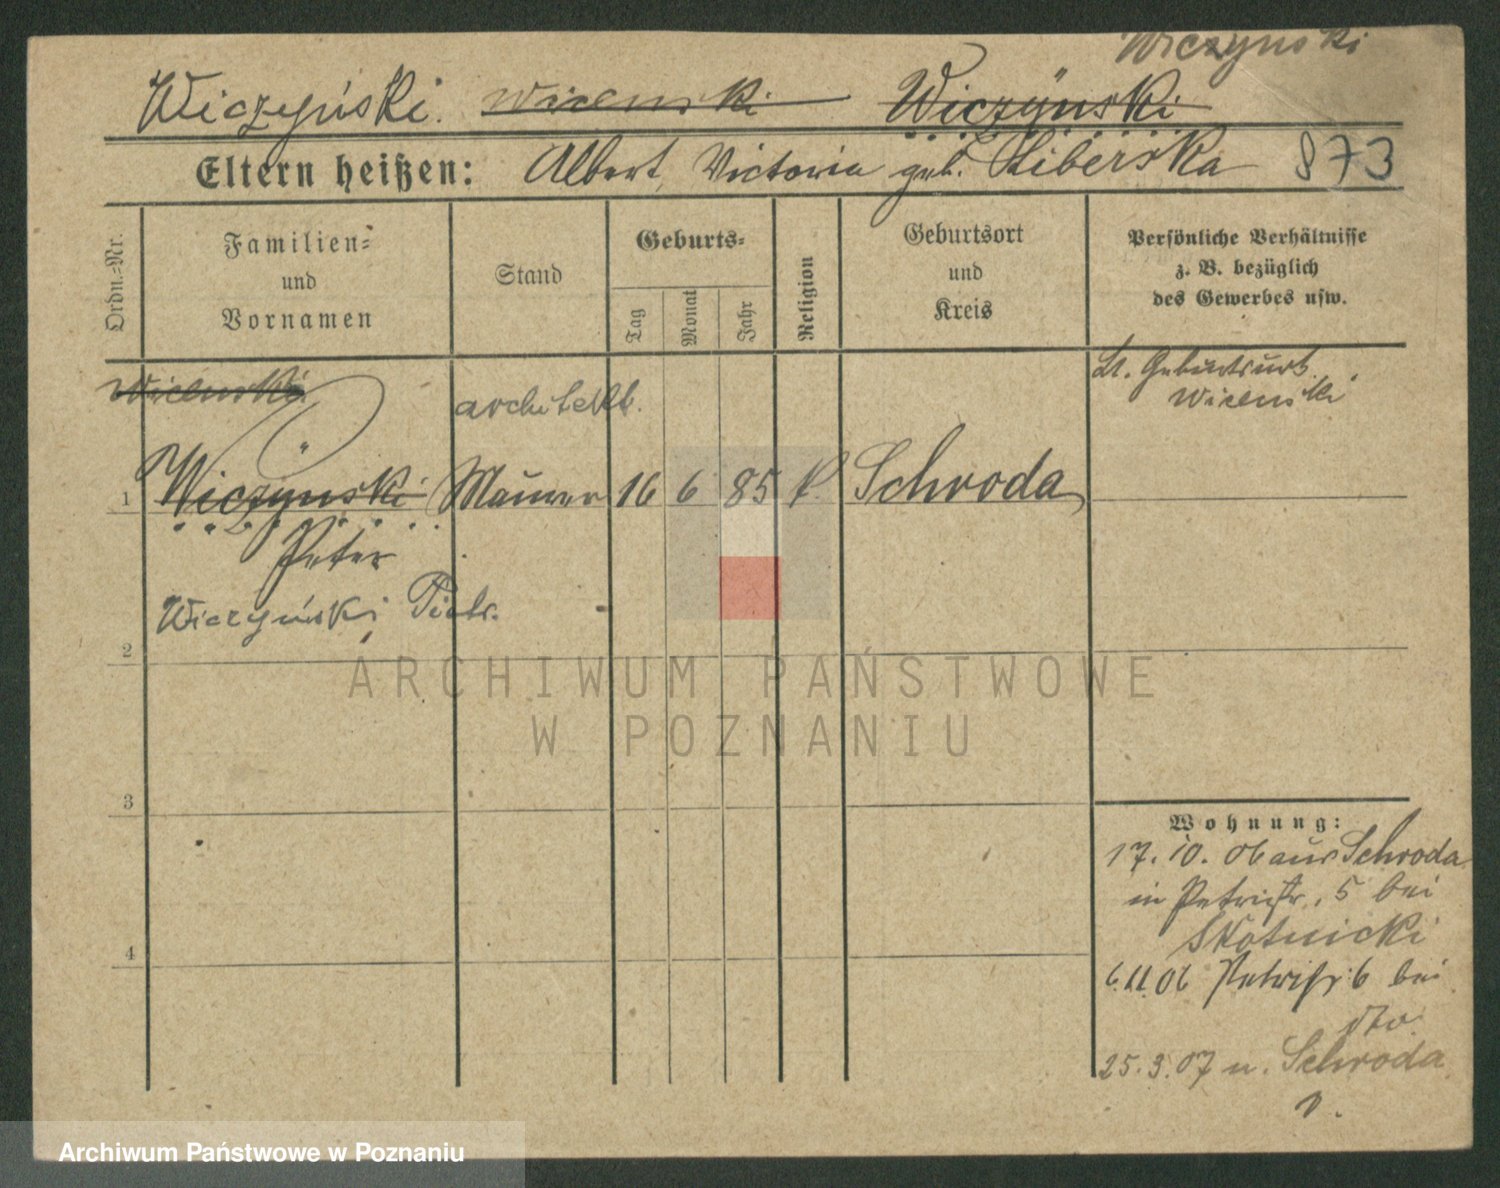 Wiczyński
Wiczyński. Wicenski Wiczÿnski
Eltern heißen: Albert, Victoria geb. Liberska 873
Ordn.=Nr.
Familien=
und
Vornamen
Stand
Geburts=
Tag
Monat
Jahr
Religion
Geburtsort
und
Kreis
Persönliche Verhältnisse
z. B. bezüglich
des Gewerbes usw.
Wicenski
architekt.
Lt. Geburtsurk.
Wicenski
1 Wiczÿnski Maurer 16 6 85 k. Schroda
Peter
Wiczyński Piotr.
2
3
4
Wohnung:
17. 10. 06 aus Schroda
in Petristr. 5 bei
Skotnicki
6.11.06 Petristr. 6 bei
dto.
25.3.07 n. Schroda
v.
ARCHIWUM PAŃSTWOWE
W POZNANIU
Archiwum Państwowe w Poznaniu